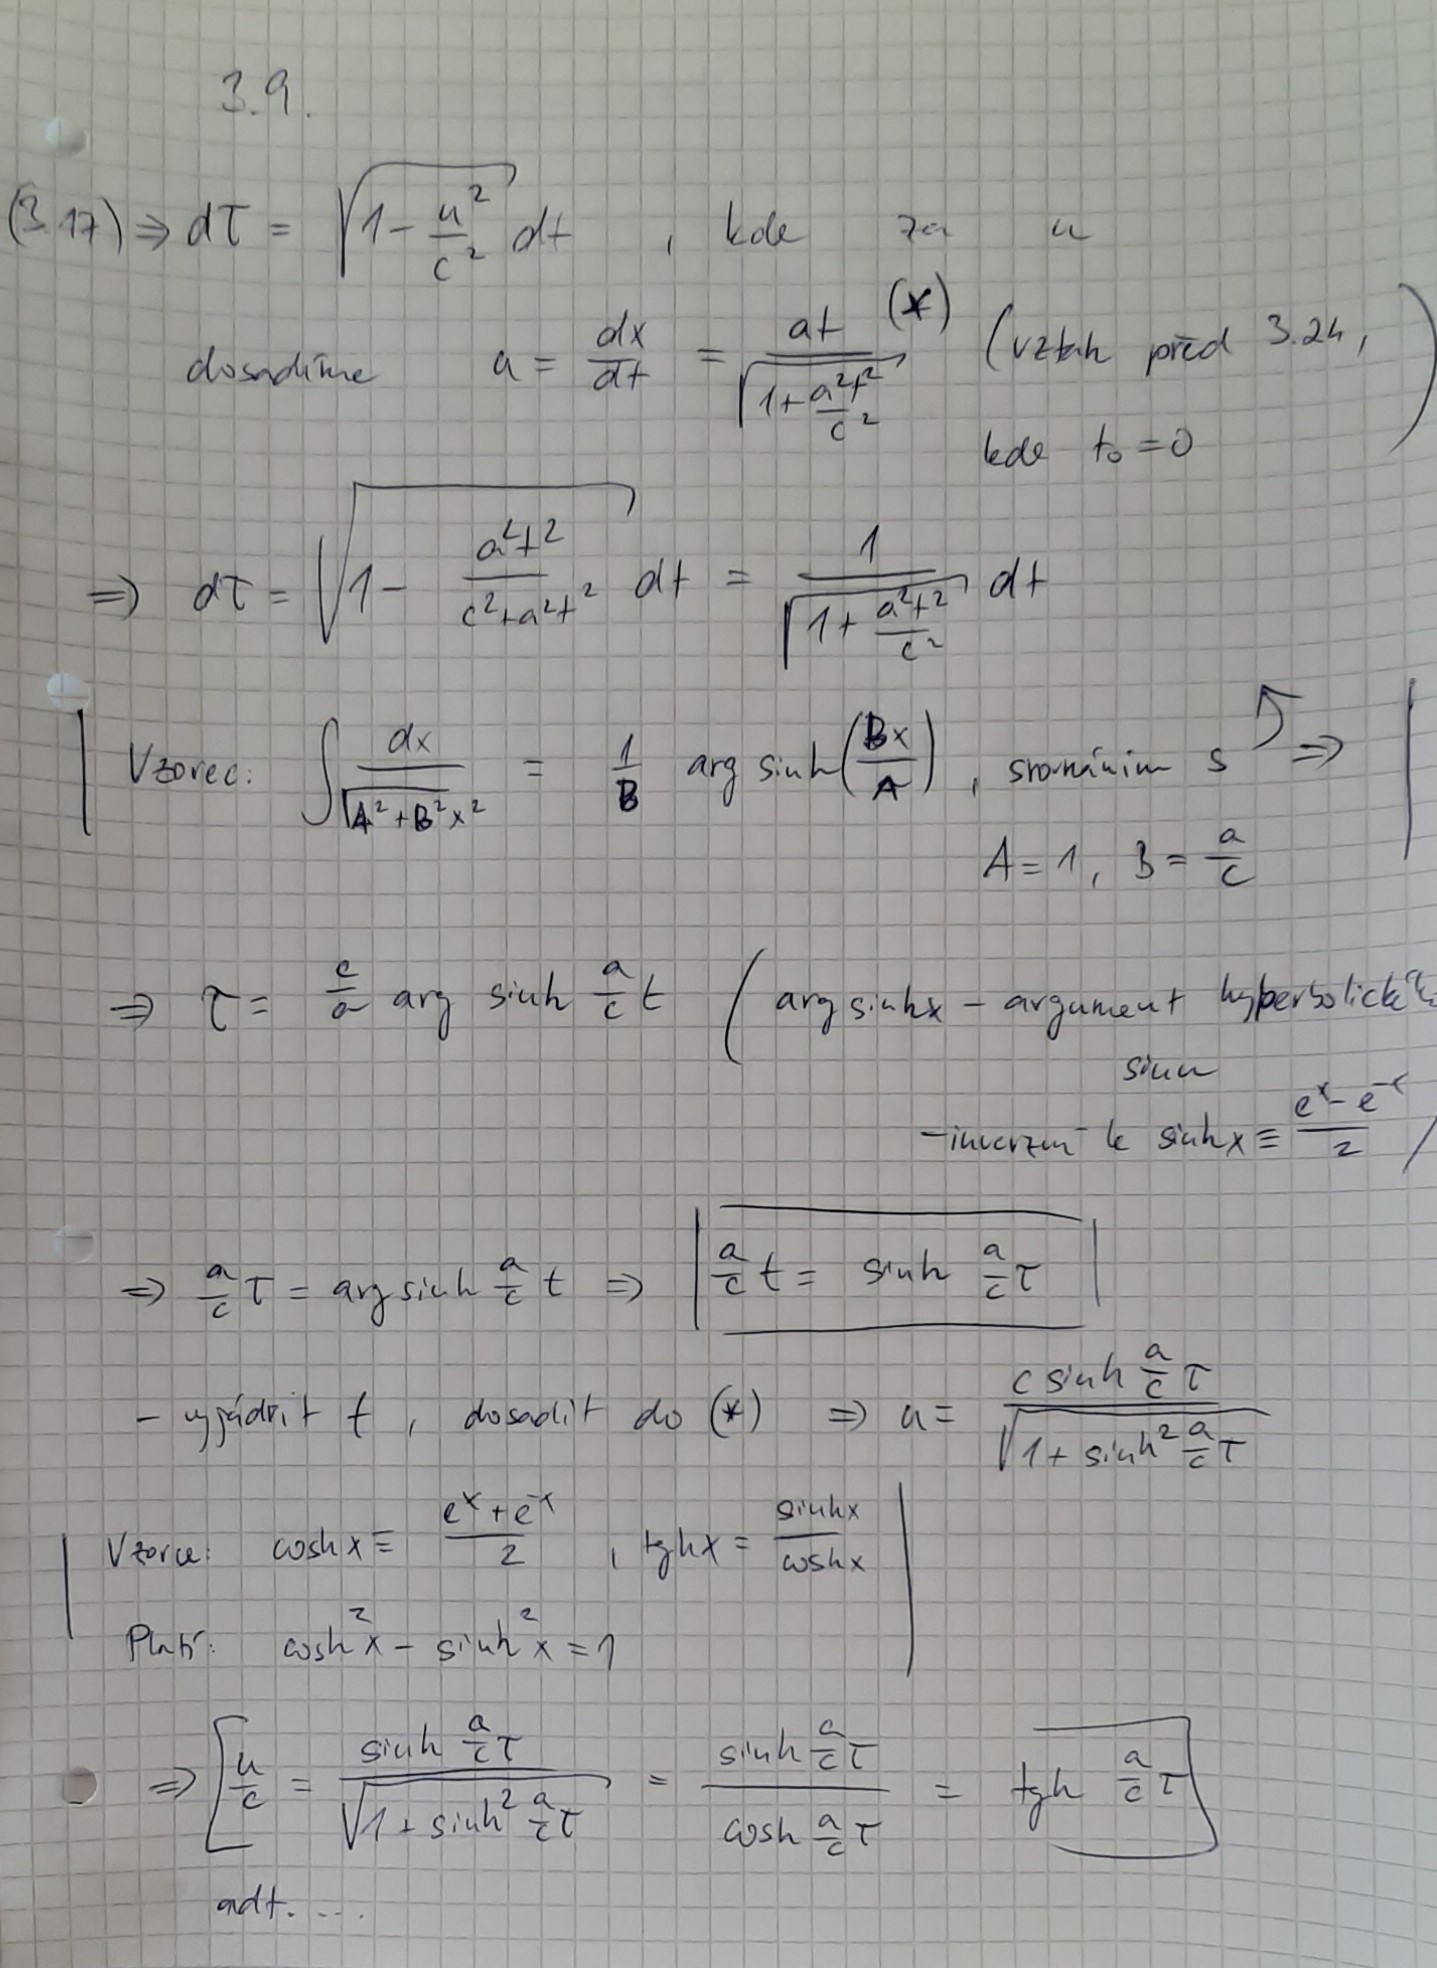 3.9.
(3.17) ⇒ dτ = √(1 - u²/c²) dt , kde za u
dosadíme u = dx/dt = at/√(1 + a²t²/c²) (*) (vztah před 3.24,
kde t₀ = 0)
⇒ dτ = √(1 - a²t²/(c²+a²t²)) dt = 1/√(1 + a²t²/c²) dt
Vzorec: ∫ dx/√(A²+B²x²) = 1/B arg sinh(Bx/A) , srovnáním s ⇒
A = 1, B = a/c
⇒ τ = c/a arg sinh a/c t (arg sinhx - argument hyperbolického
sinu
- inverzní k sinhx ≡ (eˣ - e⁻ˣ)/2 )
⇒ a/c τ = arg sinh a/c t ⇒ a/c t = sinh a/c τ
- vyjádřit t , dosadit do (*) ⇒ u = c sinh a/c τ / √(1 + sinh² a/c τ)
Vzorce: coshx ≡ (eˣ + e⁻ˣ)/2 , tghx = sinhx/coshx
Platí: cosh²x - sinh²x = 1
⇒ u/c = sinh a/c τ / √(1 + sinh² a/c τ) = sinh a/c τ / cosh a/c τ = tgh a/c τ
adt. ...